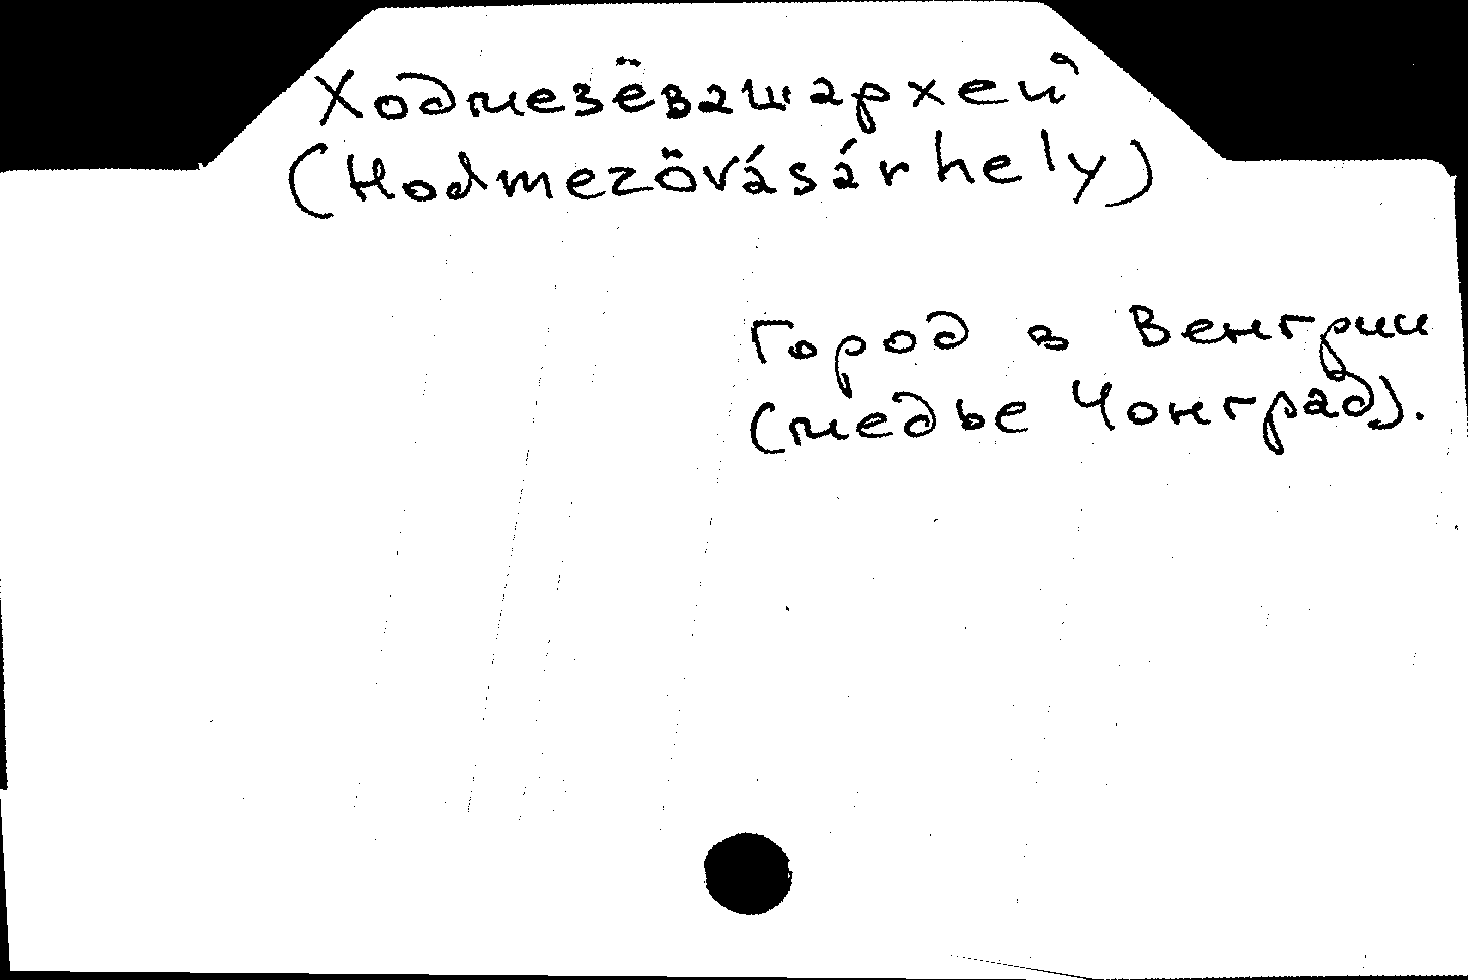 Ходмезёвашархей
(Hodmezövásárhely)
Город в Венгрии
(медье Чонград).